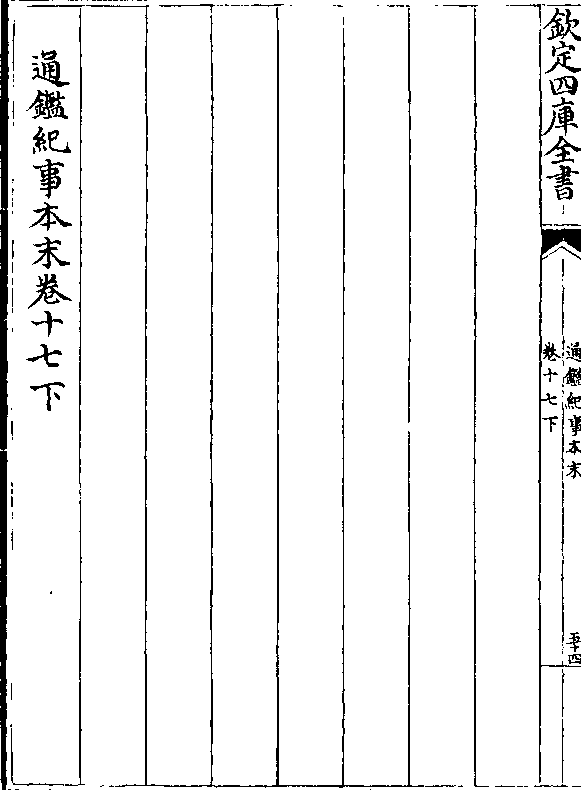 欽定四庫全書
通鑑紀事本末
卷十七下
五十四
通鑑紀事本末卷十七下